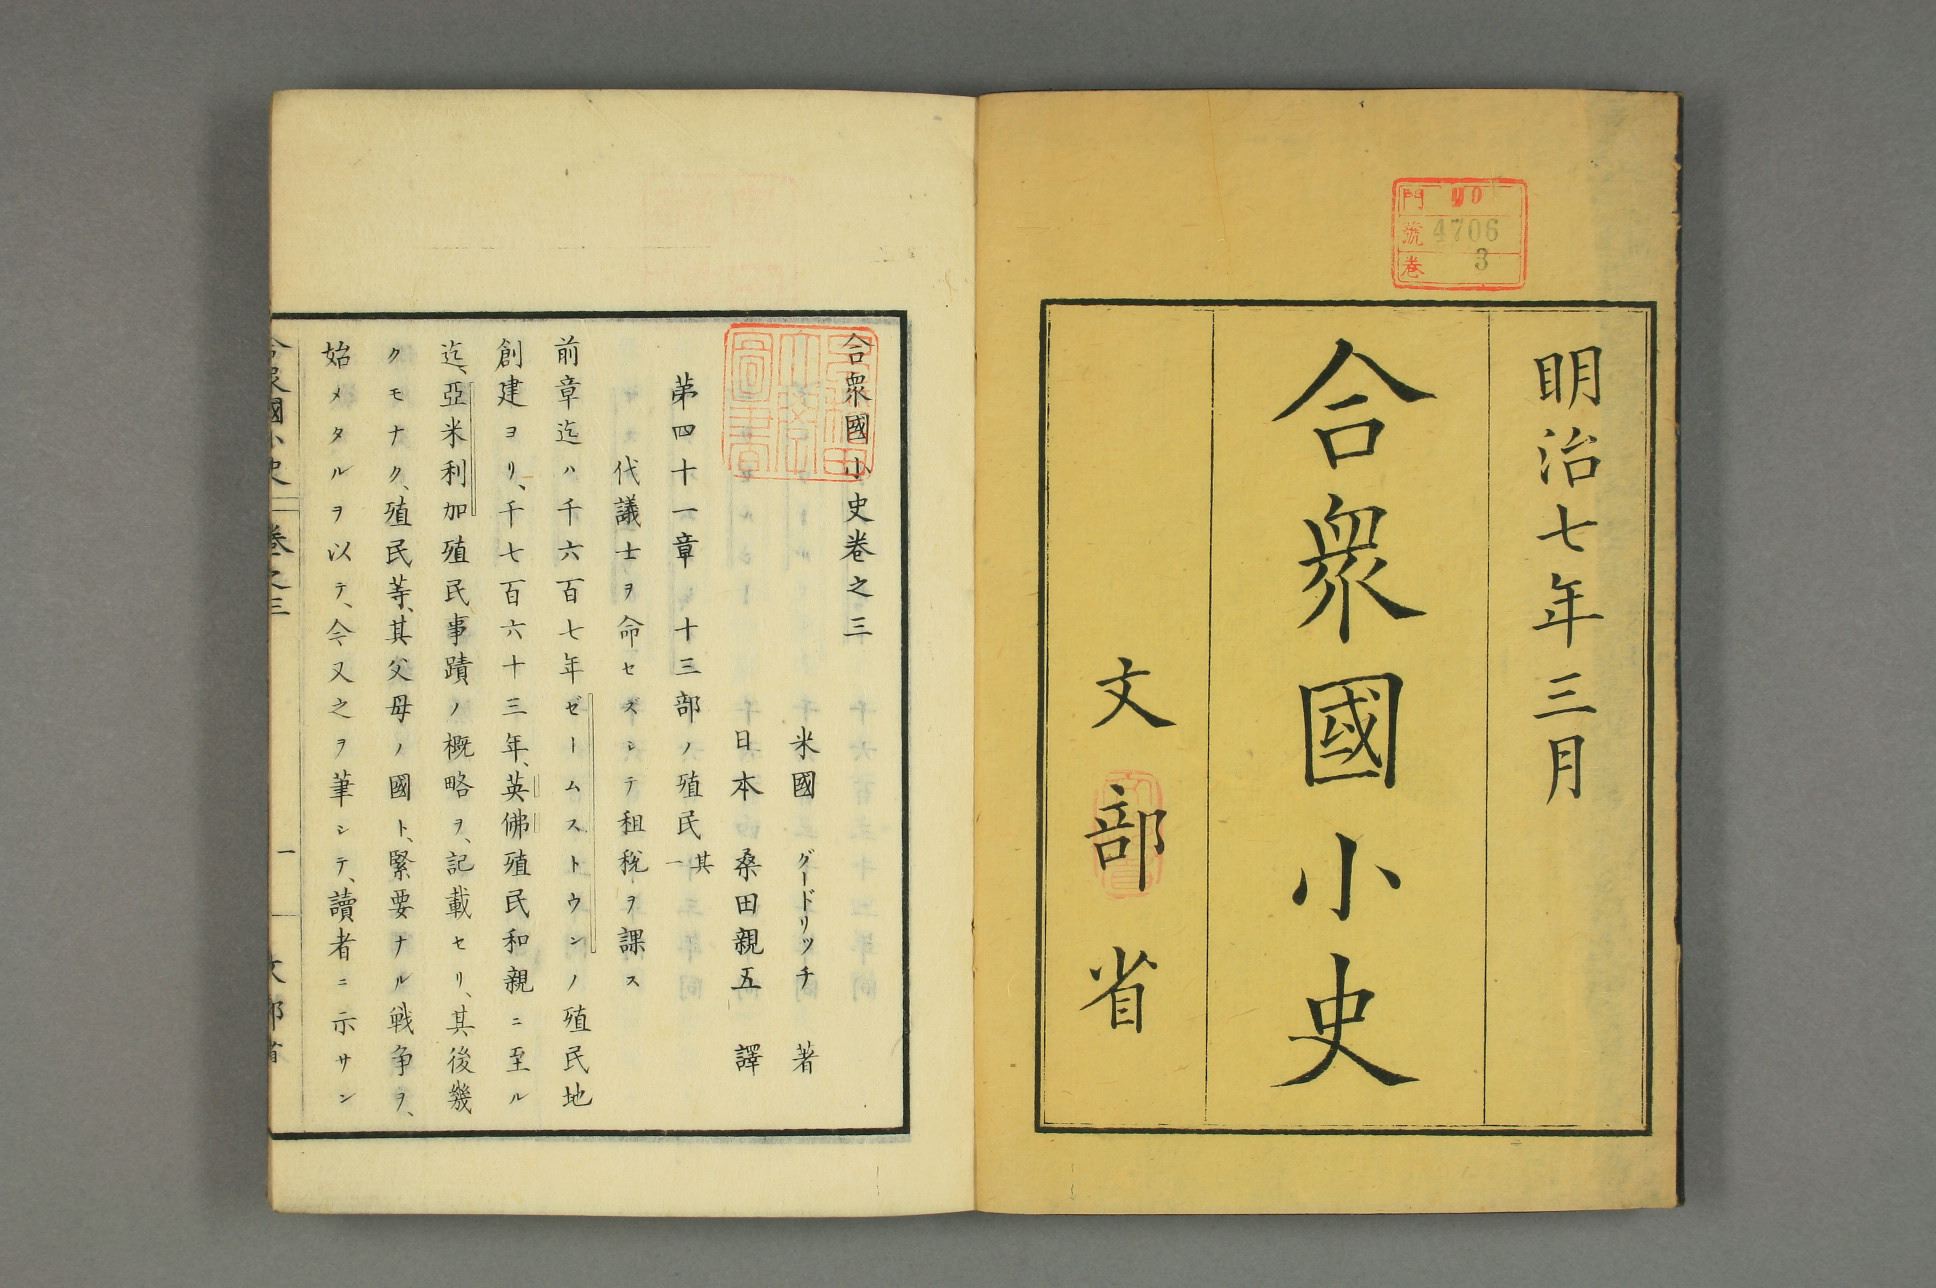 明治七年三月
合衆國小史
文部省
門 90
號 4706
卷 3
合衆國小史卷之三
米國 グードリッチ 著
日本 桑田親五 譯
第四十一章 十三部ノ殖民 其一
代議士ヲ命セズシテ租税ヲ課ス
前章迄ハ千六百七年ゼームストウンノ殖民地
創建ヨリ、千七百六十三年、英佛殖民和親ニ至ル
迄、亞米利加殖民事蹟ノ概略ヲ、記載セリ、其後幾
クモナク、殖民等、其父母ノ國ト、緊要ナル戦争ヲ、
始メタルヲ以テ、今又之ヲ筆シテ、讀者ニ示サン
合衆國小史 卷之三 一 文部省